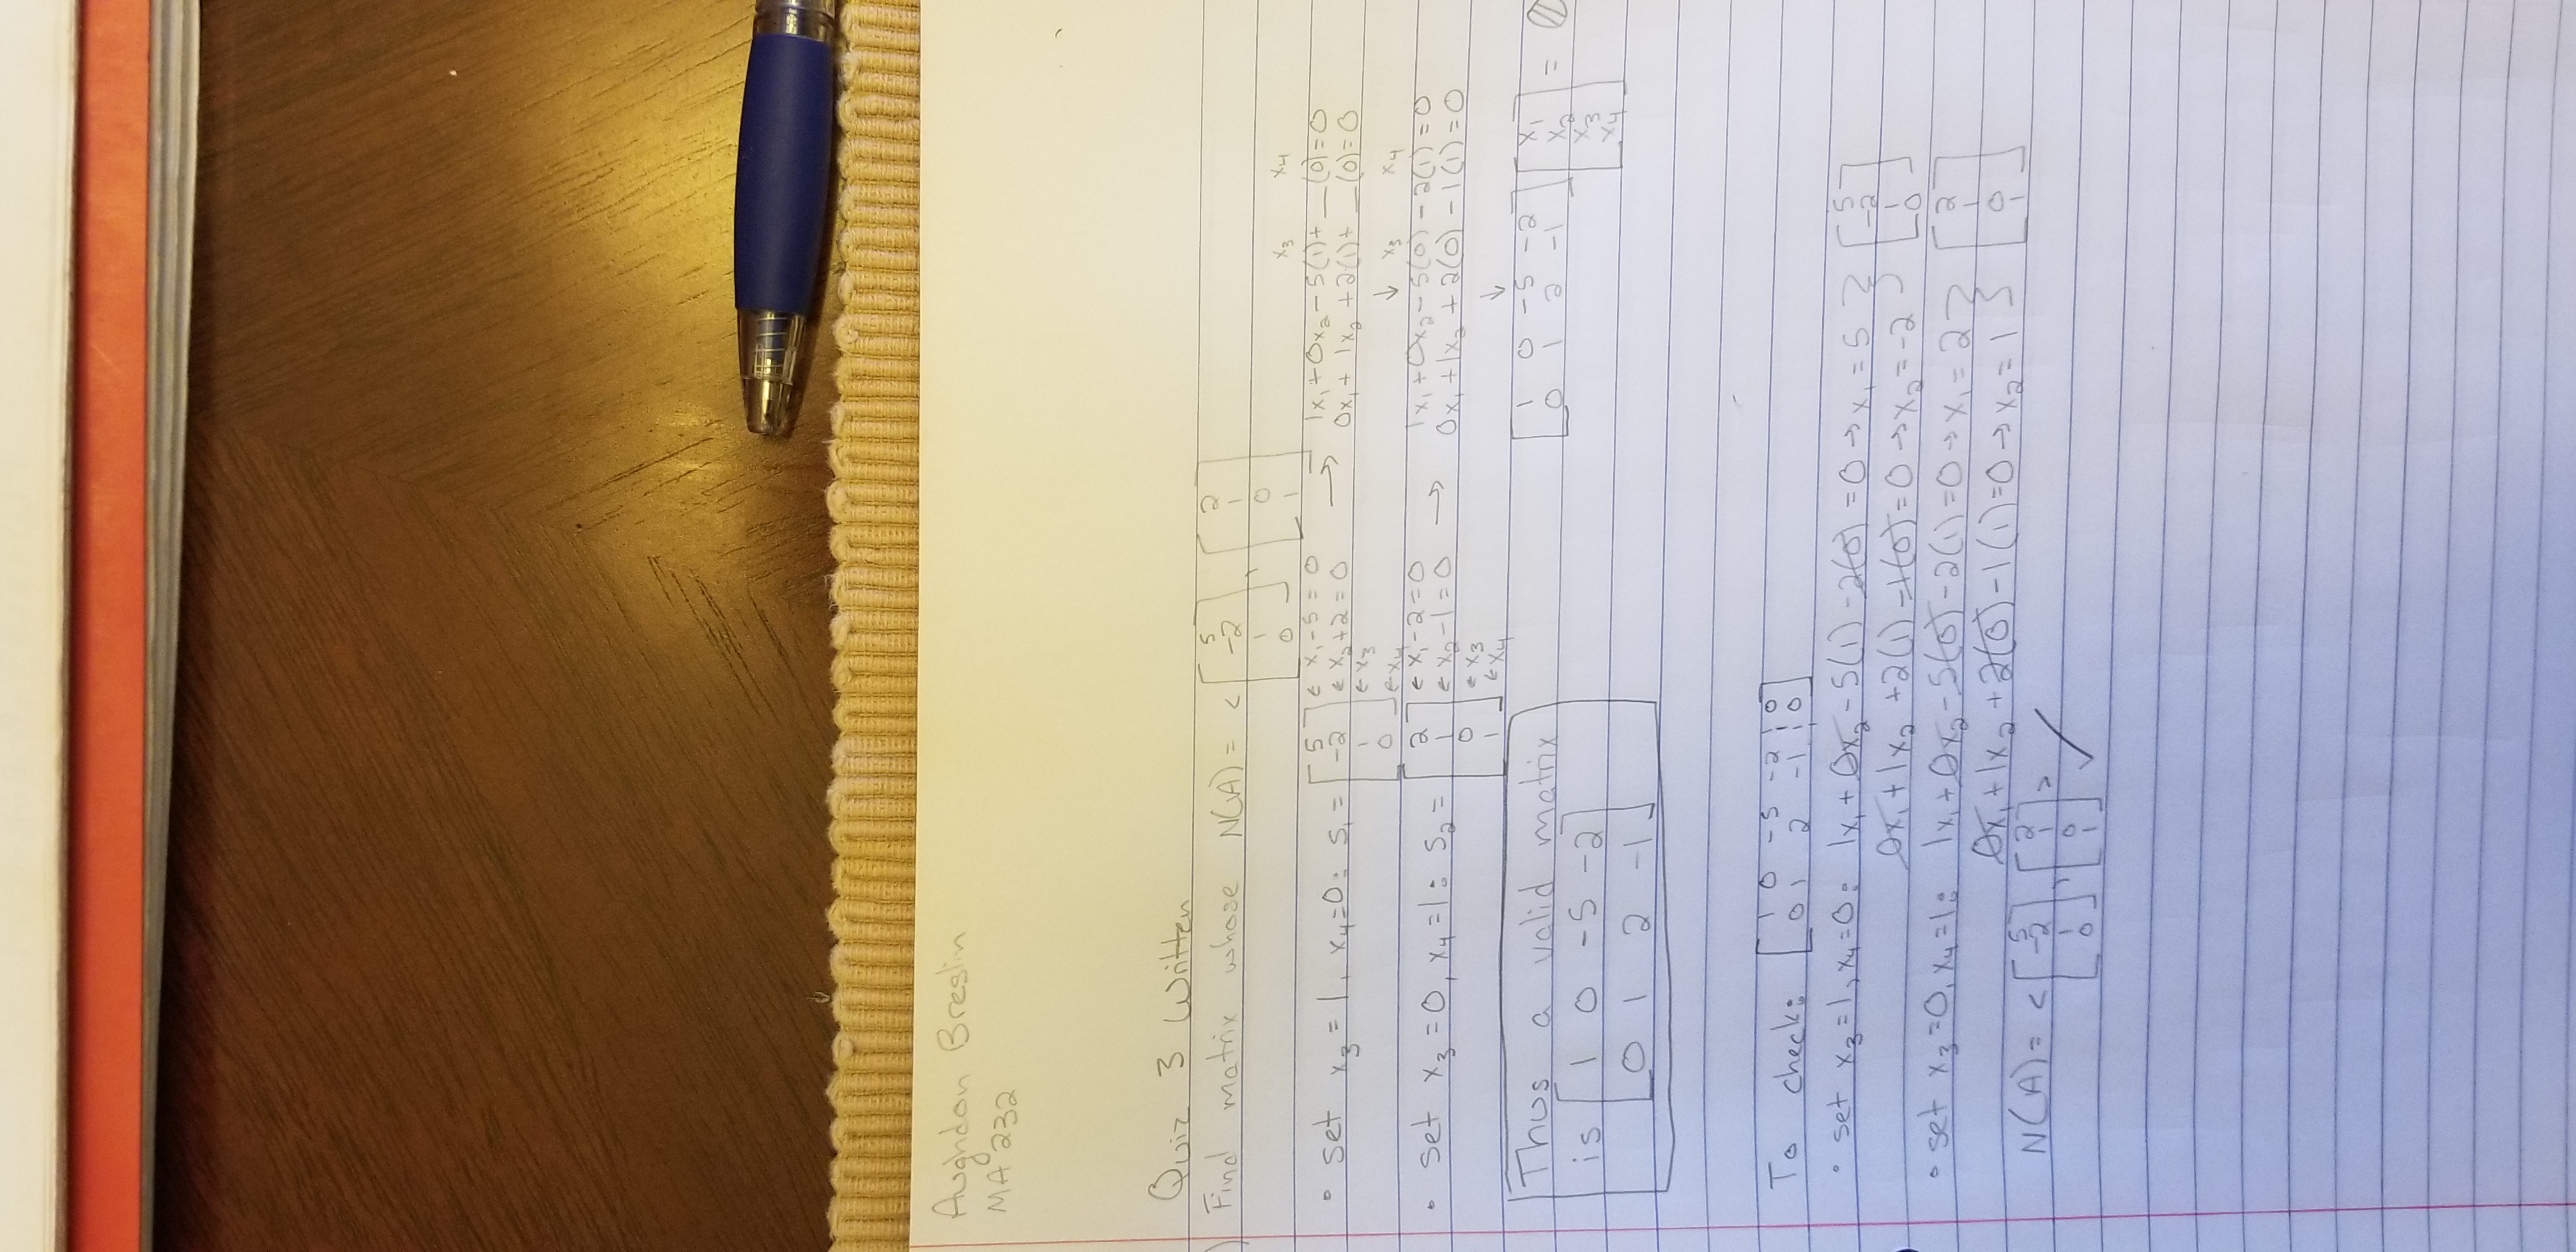 Aughdon Breslin
MA 232
Quiz 3 Written
) Find matrix whose N(A) = < [5 -2 1 0], [2 1 0 1]
• set x₃=1, x₄=0: S₁ = [5 -2 1 0] ← x₁-5=0 ← x₂+2=0 ← x₃ ← x₄ → x₃ x₄ 1x₁+0x₂-5(1)+__(0)=0 0x₁+1x₂+2(1)+__(0)=0
↓
• set x₃=0, x₄=1: S₂ = [2 1 0 1] ← x₁-2=0 ← x₂-1=0 ← x₃ ← x₄ → x₃ x₄ 1x₁+0x₂-5(0)-2(1)=0 0x₁+1x₂+2(0)-1(1)=0
↓
[1 0 -5 -2
0 1 2 -1] [x₁ x₂ x₃ x₄] = 0
Thus a valid matrix
is [1 0 -5 -2
0 1 2 -1]
To check: [1 0 -5 -2 ¦ 0
0 1 2 -1 ¦ 0]
• set x₃=1, x₄=0: 1x₁+0x₂-5(1)-2(0)=0→x₁=5 } [5 -2 1 0]
0x₁+1x₂+2(1)-1(0)=0→x₂=-2
• set x₃=0, x₄=1: 1x₁+0x₂-5(0)-2(1)=0→x₁=2 } [2 1 0 1]
0x₁+1x₂+2(0)-1(1)=0→x₂=1
N(A)= < [5 -2 1 0], [2 1 0 1] > ✓